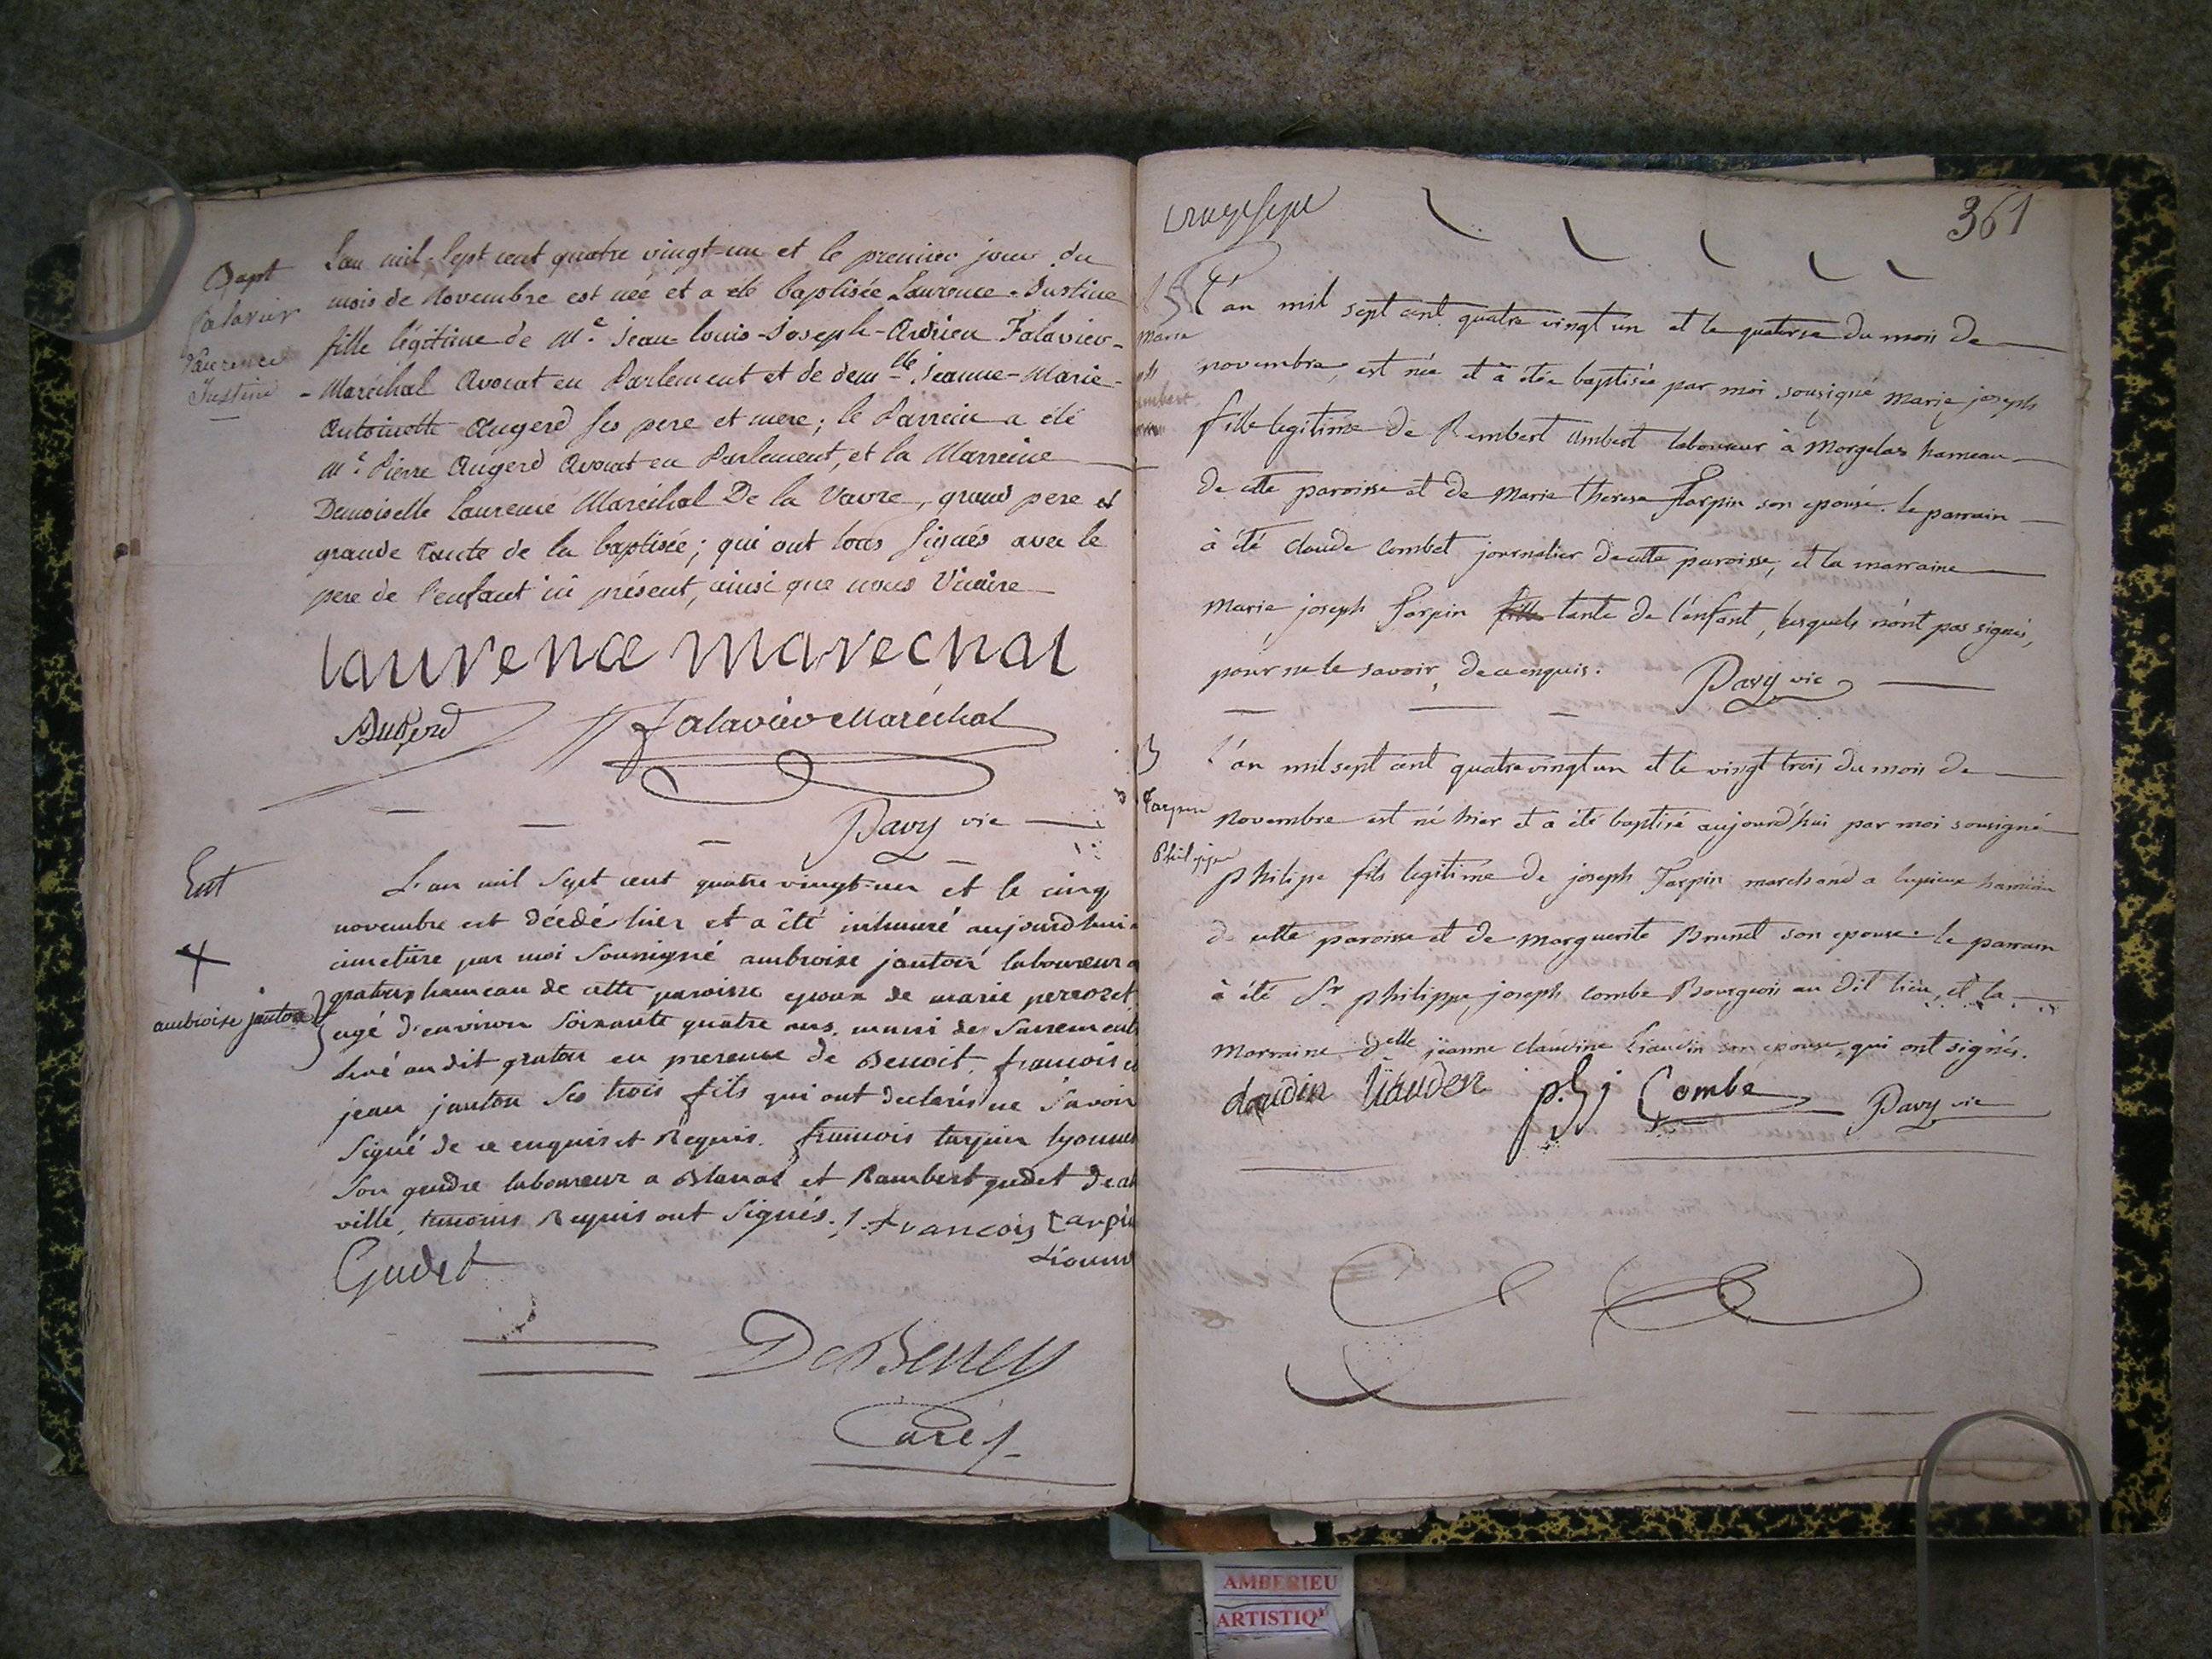 Bapt
Falavier
Laurence
Justine
L'an mil-sept cent quatre vingt-un et le premier jour du
mois de Novembre est née et a été baptisée Laurence-Justine
fille légitime de Me. Jean-louis-Joseph-Andrieu Falavier-
-Maréchal Avocat en Parlement et de demlle Jeanne-Marie-
Antoinette Augerd ses pere et mere; le Parrein a été
Me. Pierre Augerd Avocat en Parlement, et la Marreine
Demoiselle Laurence Maréchal De la Vavre, grand pere et
grande tante de la baptisée; qui ont tous signés avec le
pere de l'enfant ici présent, ainsi que nous Vicaire
laurence marechal
Augerd Falavier Maréchal
Pavy vic
Ent
ambroise janton
L'an mil sept cent quatre vingt-un et le cinq
novembre est décédé hier et a été inhumé aujourd'hui
cimetière par moi soussigné ambroise janton laboureur a
hameau de cette paroisse epoux de marie perrozet
agé d'environ soixante quatre ans. muni des sacrements
au dit en presence de Benoit, francois et
jean janton ses trois fils qui ont declarés ne savoir
signé de ce enquis et Requis. francois tarpin lyonnet
son gendre laboureur a Blanas et Rambert gudet de
ville, temoins Requis ont signés. francois tarpin
Gudet
DeBeney
Curé
361
Marie
L'an mil sept cent quatre vingt un et le quatorze du mois de
novembre, est née et à étée baptisée par moi sousigné marie joseph
fille legitime de Rembert umbert laboureur à Morgelas hameau
de cette paroisse et de Marie therese Tarpin son epouse. le parrain
à été claude combet journalier de cette paroisse, et la marraine
marie joseph Tarpin tante de l'énfant, lesquels n'ont pas signés,
pour ne le savoir, de ce enquis. Pavy vic
Tarpin
Philippe
l'an mil sept cent quatre vingt un et le vingt trois du mois de
novembre est né hier et à été baptisé aujourd'hui par moi sousigné
philipe fils legitime de joseph Tarpin marchand a hameau
de cette paroisse et de marguerite Brunet son epouse. le parrain
à été Sr philippe joseph combe Bourgeois au dit lieu, et la
marraine delle jeanne claudine Liaudin son epouse, qui ont signés.
p. j Combe Pavy vic
AMBERIEU
ARTISTIQ